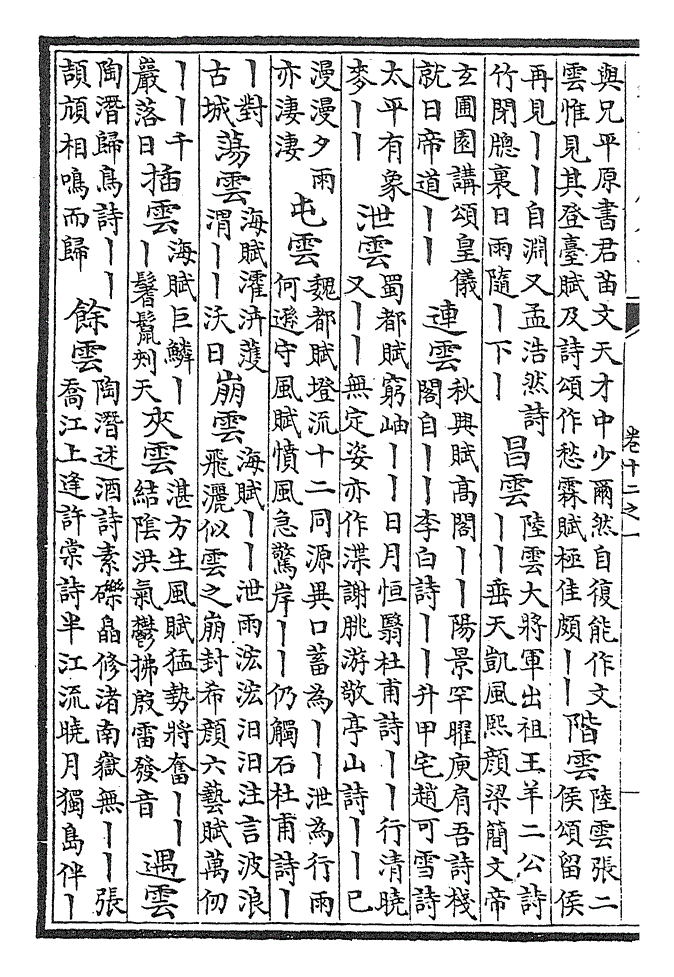 與兄平原書君苗文天才中少爾然自復能作文
雲惟見其登臺賦及詩頌作愁霖賦極佳頗丨丨
階雲
陸雲張二
侯頌留侯
再見丨丨自淵又孟浩然詩
竹閉牕裏日雨隨丨下丨
昌雲
陸雲大將軍出祖王羊二公詩
丨丨垂天凱風熙顏梁簡文帝
玄圃園講頌皇儀
就日帝道丨丨
連雲
秋興賦高閣丨丨陽景罕曜庾肩吾詩棧
閣自丨丨李白詩丨丨升甲宅趙可雪詩
太平有象
麥丨丨
泄雲
蜀都賦窮岫丨丨日月恒翳杜甫詩丨丨行清曉
又丨丨無定姿亦作渫謝朓游敬亭山詩丨丨已
漫漫夕雨
亦淒淒
屯雲
魏都賦墱流十二同源異口蓄為丨丨泄為行雨
何遜守風賦憤風急驚岸丨丨仍觸石杜甫詩丨
丨對
古城
蕩雲
海賦濯泋濩
渭丨丨沃日
崩雲
海賦丨丨泄雨浤浤汨汨注言波浪
飛灑似雲之崩封希顏六藝賦萬仞
丨丨千
巖落日
插雲
海賦巨鱗丨
丨鬐鬣刺天
夾雲
湛方生風賦猛勢將奮丨丨
結陰洪氣鬱拂殷雷發音
遇雲
陶潛歸鳥詩丨丨
頡頏相鳴而歸
餘雲
陶潛述酒詩素礫皛修渚南嶽無丨丨張
喬江上逢許棠詩半江流曉月獨島伴丨
卷十二之一